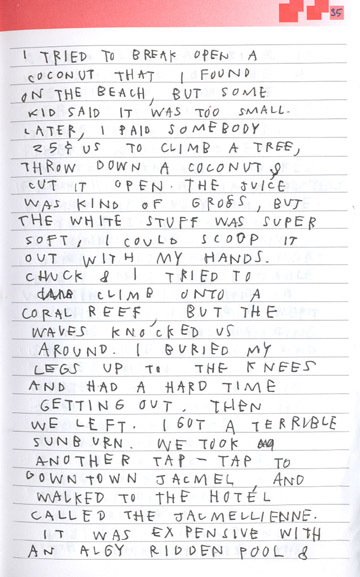 35
I TRIED TO BREAK OPEN A
COCONUT THAT I FOUND
ON THE BEACH, BUT SOME
KID SAID IT WAS TOO SMALL.
LATER, I PAID SOMEBODY
25¢ US TO CLIMB A TREE,
THROW DOWN A COCONUT &
CUT IT OPEN. THE JUICE
WAS KIND OF GROSS, BUT
THE WHITE STUFF WAS SUPER
SOFT, I COULD SCOOP IT
OUT WITH MY HANDS.
CHUCK & I TRIED TO
CLIMB ONTO A
CORAL REEF, BUT THE
WAVES KNOCKED US
AROUND. I BURIED MY
LEGS UP TO THE KNEES
AND HAD A HARD TIME
GETTING OUT. THEN
WE LEFT. I GOT A TERRIBLE
SUNBURN. WE TOOK
ANOTHER TAP-TAP TO
DOWNTOWN JACMEL, AND
WALKED TO THE HOTEL
CALLED THE JACMELLIENNE.
IT WAS EXPENSIVE WITH
AN ALGY RIDDEN POOL &